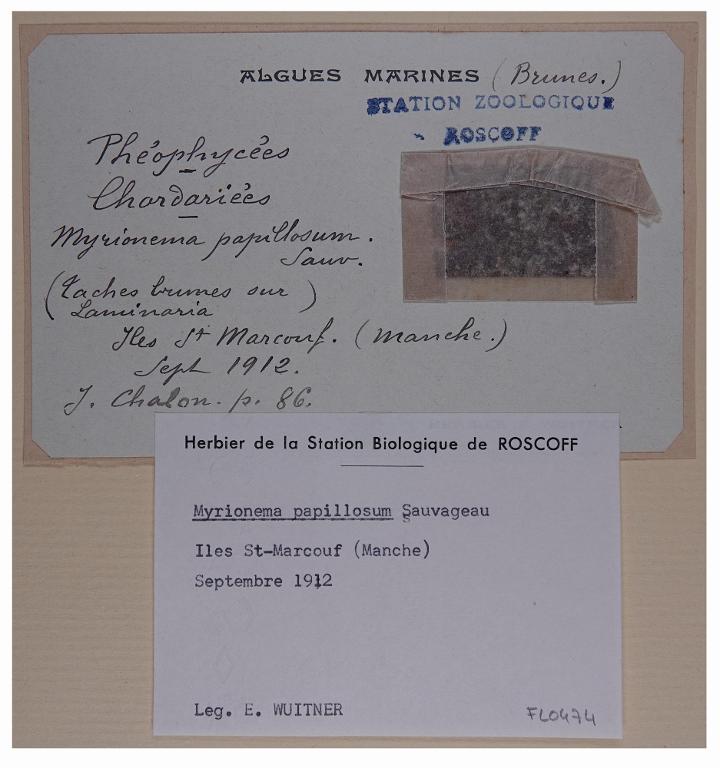 ALGUES MARINES (Brunes.)
STATION ZOOLOGIQUE
ROSCOFF
Phéophycées
Chordariées
Myrionema papillosum.
Sauv.
(taches brunes sur)
Laminaria
Iles St Marcouf. (Manche.)
Sept 1912.
J. Chalon. p. 86.
Herbier de la Station Biologique de ROSCOFF
Myrionema papillosum Sauvageau
Iles St-Marcouf (Manche)
Septembre 1912
Leg. E. WUITNER
FL0474